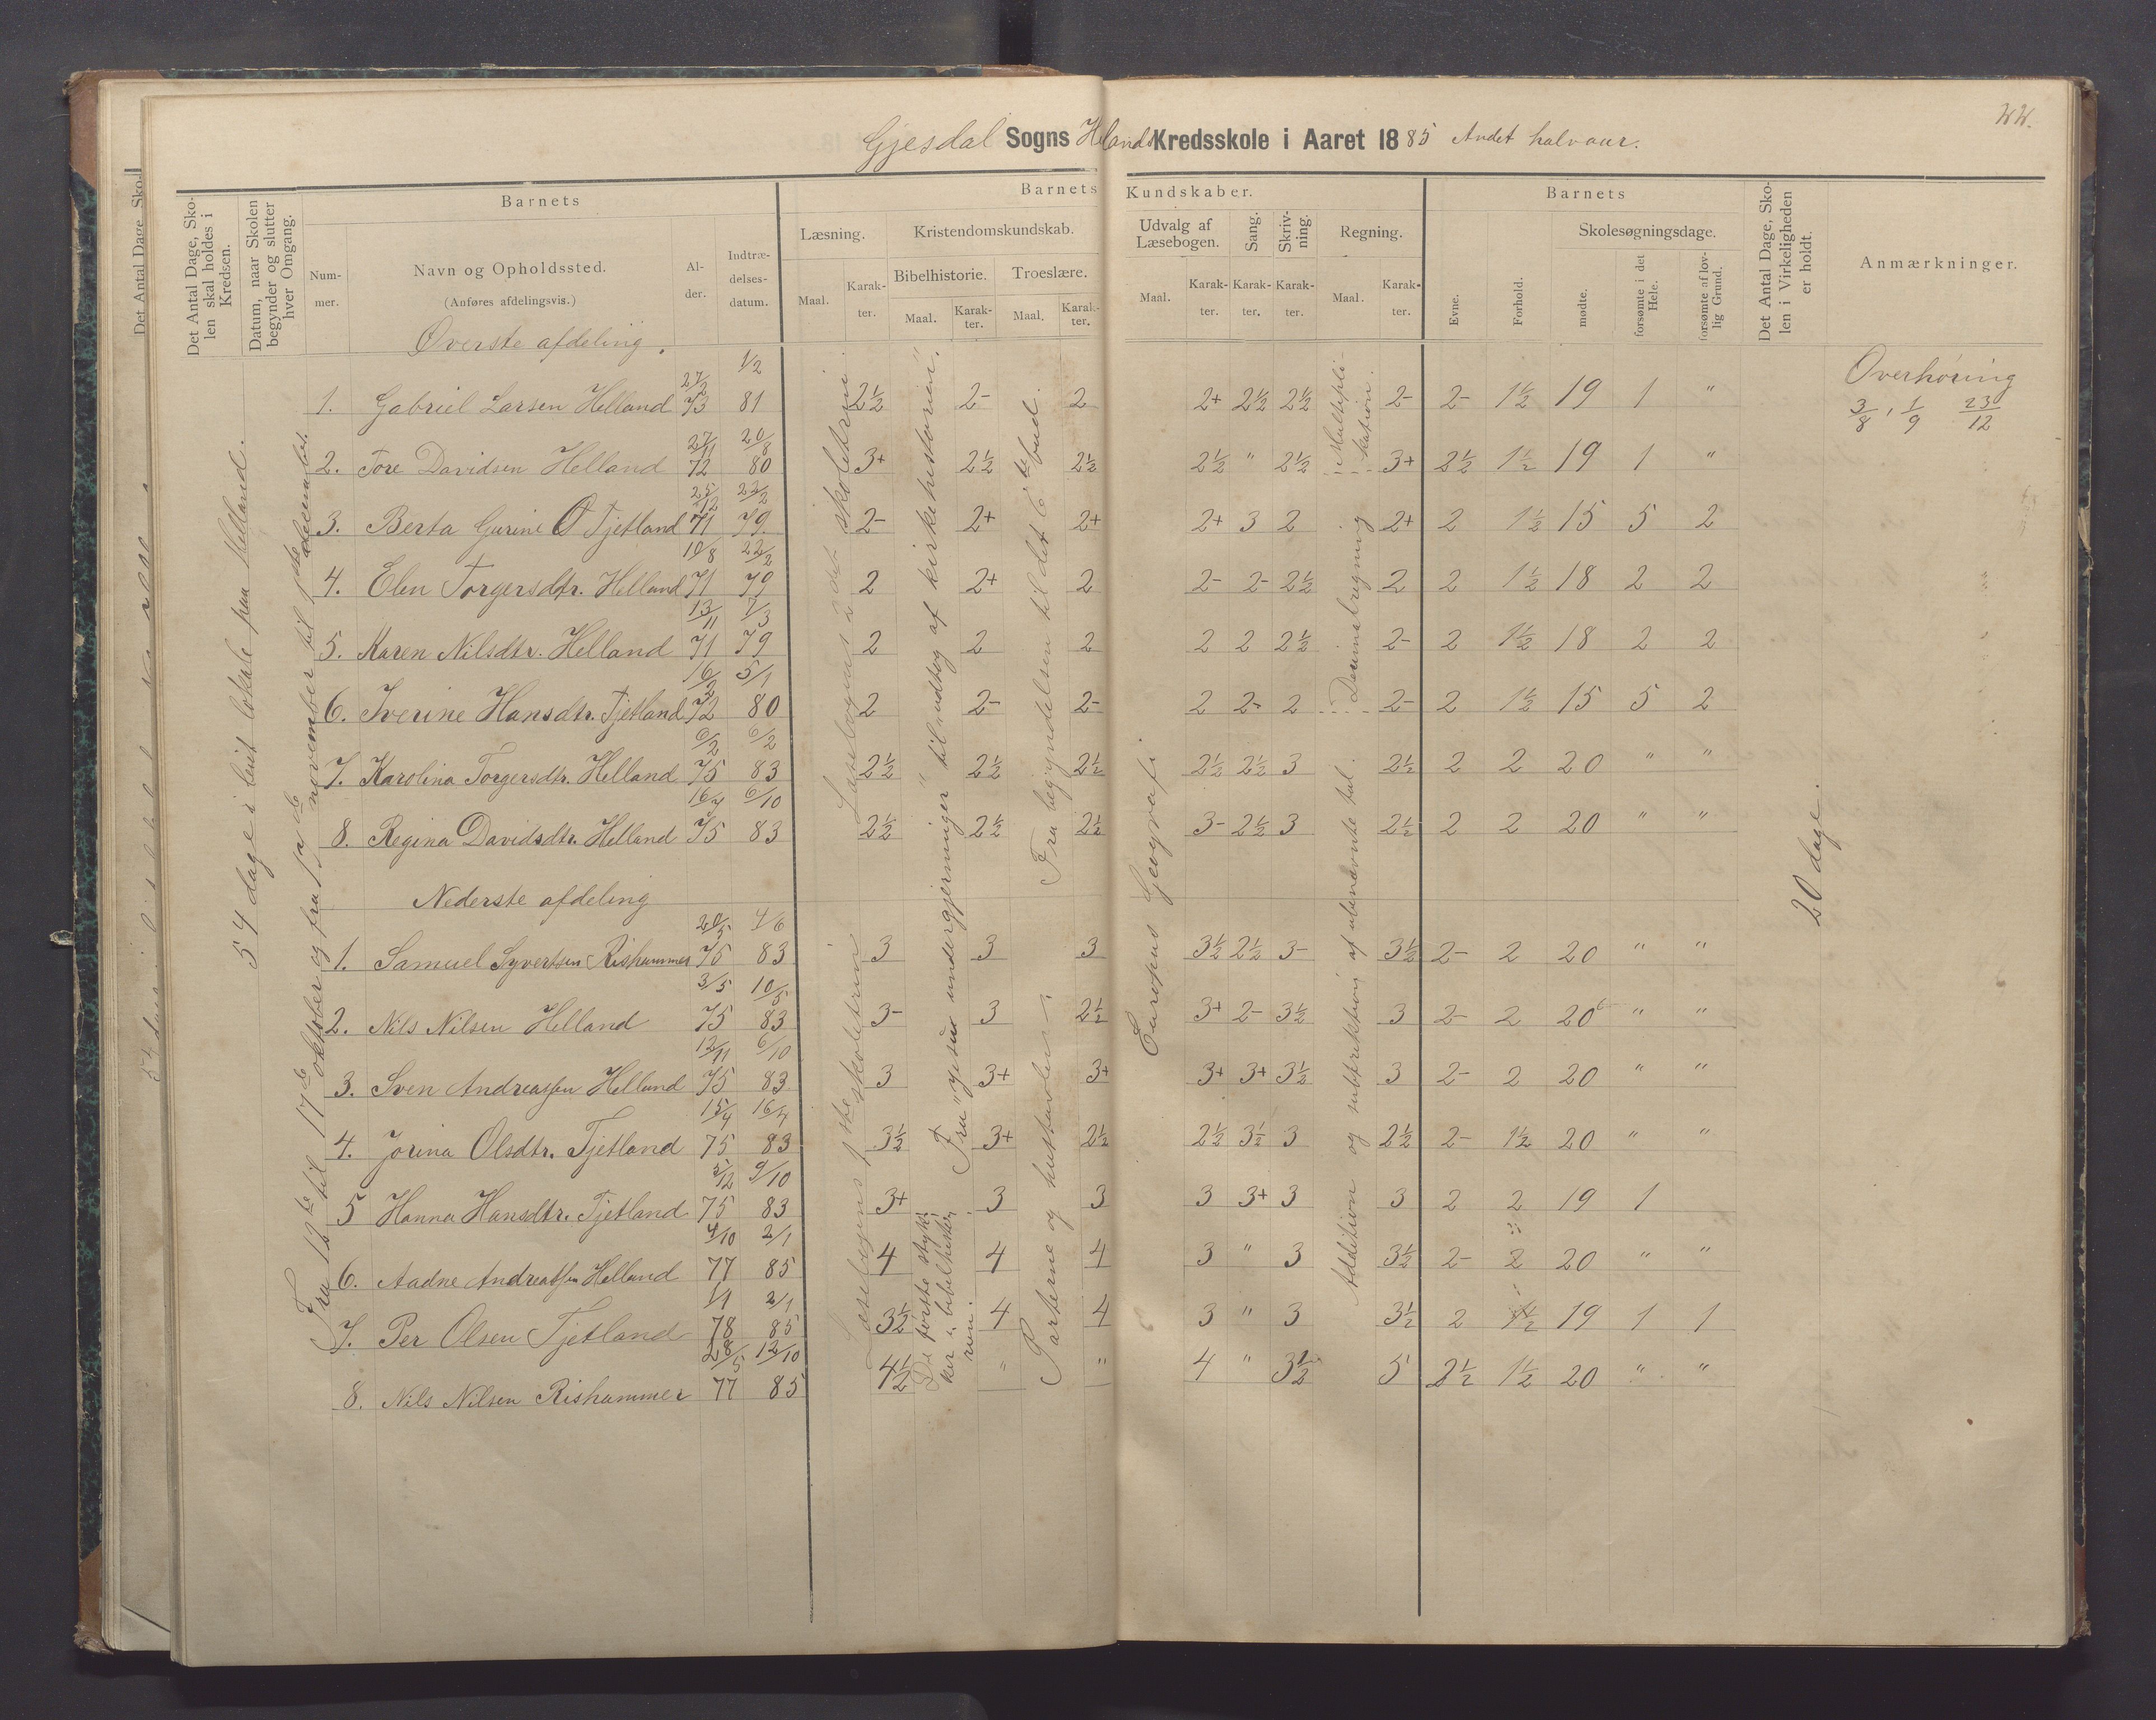 22.
Gjesdal Sogns Hellands Kredsskole i Aaret 1885 Andet halvaar.
Det Antal Dage, Skolen skal holdes i Kredsen.
Datum, naar Skolen begynder og slutter hver Omgang.
Barnets
Nummer.
Navn og Opholdssted.
(Anføres afdelingsvis.)
Alder.
Indtrædelsesdatum.
Barnets Kundskaber.
Læsning.
Maal. Karakter.
Kristendomskundskab.
Bibelhistorie. Troeslære.
Maal. Karakter. Maal. Karakter.
Udvalg af Læsebogen. Sang. Skrivning. Regning.
Maal. Karakter. Karakter. Karakter. Maal. Karakter.
Barnets
Evne. Forhold.
Skolesøgningsdage.
mødte. forsømte i det Hele. forsømte af lovlig Grund.
Det Antal Dage, Skolen i Virkeligheden er holdt.
Anmærkninger.
Det Antal Dage, Sko
54 dage i leiet lokale paa Helland.
Fra 12te til 17de oktober og fra 12de november til 1ste december.
Øverste afdeling.
1. Gabriel Larsen Helland 27/2 73 1/2 81 2½ 2- 2 2+ 2½ 2½ 2- 2- 1½ 19 1 "
2. Tore Davidsen Helland 27/11 72 20/8 80 3+ 2½ 2½ 2½ " 2½ 3+ 2½ 1½ 19 1 "
3. Berta Gurine O Tjetland 25/12 71 22/2 79. 2- 2+ 2+ 2+ 3 2 2+ 2 1½ 15 5 2
4. Elen Torgersdtr. Helland 10/8 71 22/2 79 2 2+ 2 2- 2- 2½ 2 2 1½ 18 2 2
5. Karen Nilsdtr. Helland 13/11 71 7/3 79 2 2 2 2 2 2½ 2- 2 1½ 18 2 2
6. Iverine Hansdtr. Tjetland 16/2 72 5/1 80 2 2- 2- 2 2- 2 2- 2 1½ 15 5 2
7. Karolina Torgersdtr. Helland 6/2 75 6/2 83 2½ 2½ 2½ 2½ 2½ 3 2½ 2 2 20 " "
8. Regina Davidsdtr. Helland 16/7 75 6/10 83 2½ 2½ 2½ 3- 2½ 3 2½ 2 2 20 " "
Nederste afdeling
1. Samuel Syvertsen Rishammer 20/5 75 4/6 83 3 3 3 3½ 2½ 3- 3½ 2- 2 20 " "
2. Nils Nilsen Helland 3/5 75 10/5 83 3- 3 2½ 3+ 2- 3½ 3 2- 2 20 " "
3. Sven Andreassen Helland 12/11 75 6/10 83 3 3+ 3+ 3+ 3+ 3½ 3 2- 2 20 " "
4. Jorina Olsdtr. Tjetland 15/4 75 16/4 83 3½ 3+ 2½ 2½ 3½ 3 2½ 2- 1½ 20 " "
5 Hanna Hansdtr. Tjetland 2/12 75 9/10 83 3+ 3 3 3 3+ 3 3 2 2 19 1
6. Aadne Andreassen Helland 4/10 77 2/1 85 4 4 4 3 " 3 3½ 2- 2 20 " "
7. Per Olsen Tjetland 1/1 78 2/1 85 3½ 4 4 3 " 3 3½ 2 1½ 19 1 1
8. Nils Nilsen Rishammer 28/5 77 12/10 85 4½ " " 4 " 3½ 5 2½ 1½ 20 " "
Læsebogens 2det skoletrin.
Læsebogens 1ste skoletrin
Fra "Jesu undergjerninger" til "udtog af kirkehistorien".
De første stykker i bibelhistorien.
Fra begyndelsen til det 6te bud.
Parterne og hustavlen
Europas Geografi
Multiplikation.
Desimalregning
Addition og subtraktion af ubenævnte tal.
20 dage.
Overhøring
3/8, 1/9 23/12